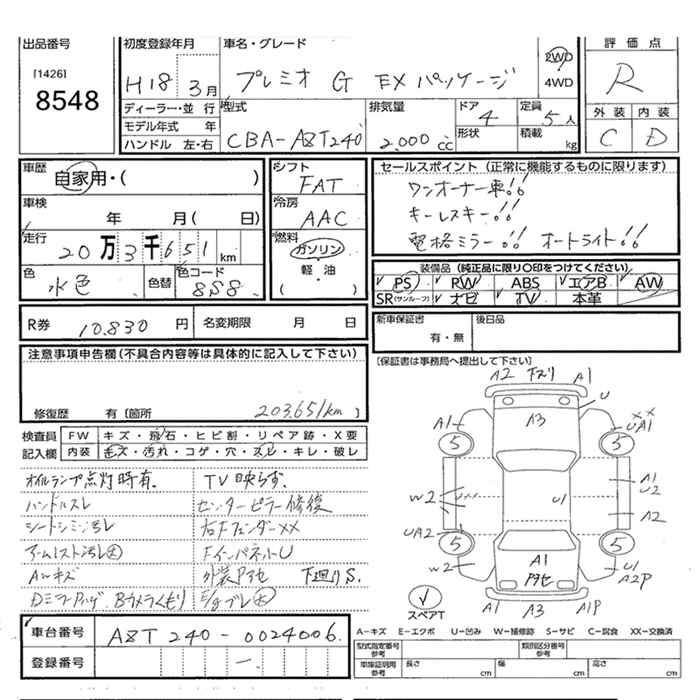 出品番号 初度登録年月 車名・グレード 評価点
[1426] H18 3月 プレミオ G EXパッケージ 2WD R
8548 4WD
ディーラー・並行 型式 排気量 ドア 定員 外装 内装
モデル年式 年 4 5人
ハンドル 左・右 CBA-AZT240 2,000cc 形状 積載 kg C D
車歴 シフト セールスポイント (正常に機能するものに限ります)
自家用・( ) FAT ワンオーナー車!!
車検 冷房 キーレスキー!!
年 月( 日) AAC 電格ミラー!! オートライト!!
走行 燃料
20万3千651km ガソリン 装備品 (純正品に限り○印をつけてください)
色 色替 色コード 軽・油 PS RW ABS エアB AW
水色 8S8 ( ) SR(サンルーフ) ナビ TV 本革
R券 10,830円 名変期限 月 日 新車保証書 後日品
有・無
注意事項申告欄(不具合内容等は具体的に記入して下さい) [保証書は事務局へ提出して下さい]
修復歴 有〔箇所 203,651km〕
検査員 FW キズ・飛石・ヒビ割・リペア跡・X要
記入欄 内装 キズ・汚れ・コゲ・穴・スレ・キレ・破レ
オイルランプ点灯時有. TV映らず.
ハンドルスレ センターピラー修復
シートシミ汚レ 右FフェンダーXX
アームレスト汚レ大 FインパネットU
Aルーキズ 外装Pアセ 下廻りS.
Bカメラくもり E/gブレ大
A2 下スリ A1
A1 A3 U XX UA1
5 5
W2 U1 A1 U2
A2
UA2 5 5
W2 A1 Pアセ U1 A2P
スペアT A1 A3 A1P
A-キズ E-エクボ U-凹み W-補修跡 S-サビ C-腐食 XX-交換済
車台番号 AZT240-0024006.
登録番号 —
型式指定番号 参考 類別区分番号 参考
車庫証明用 参考 長さ cm 幅 cm 高さ cm